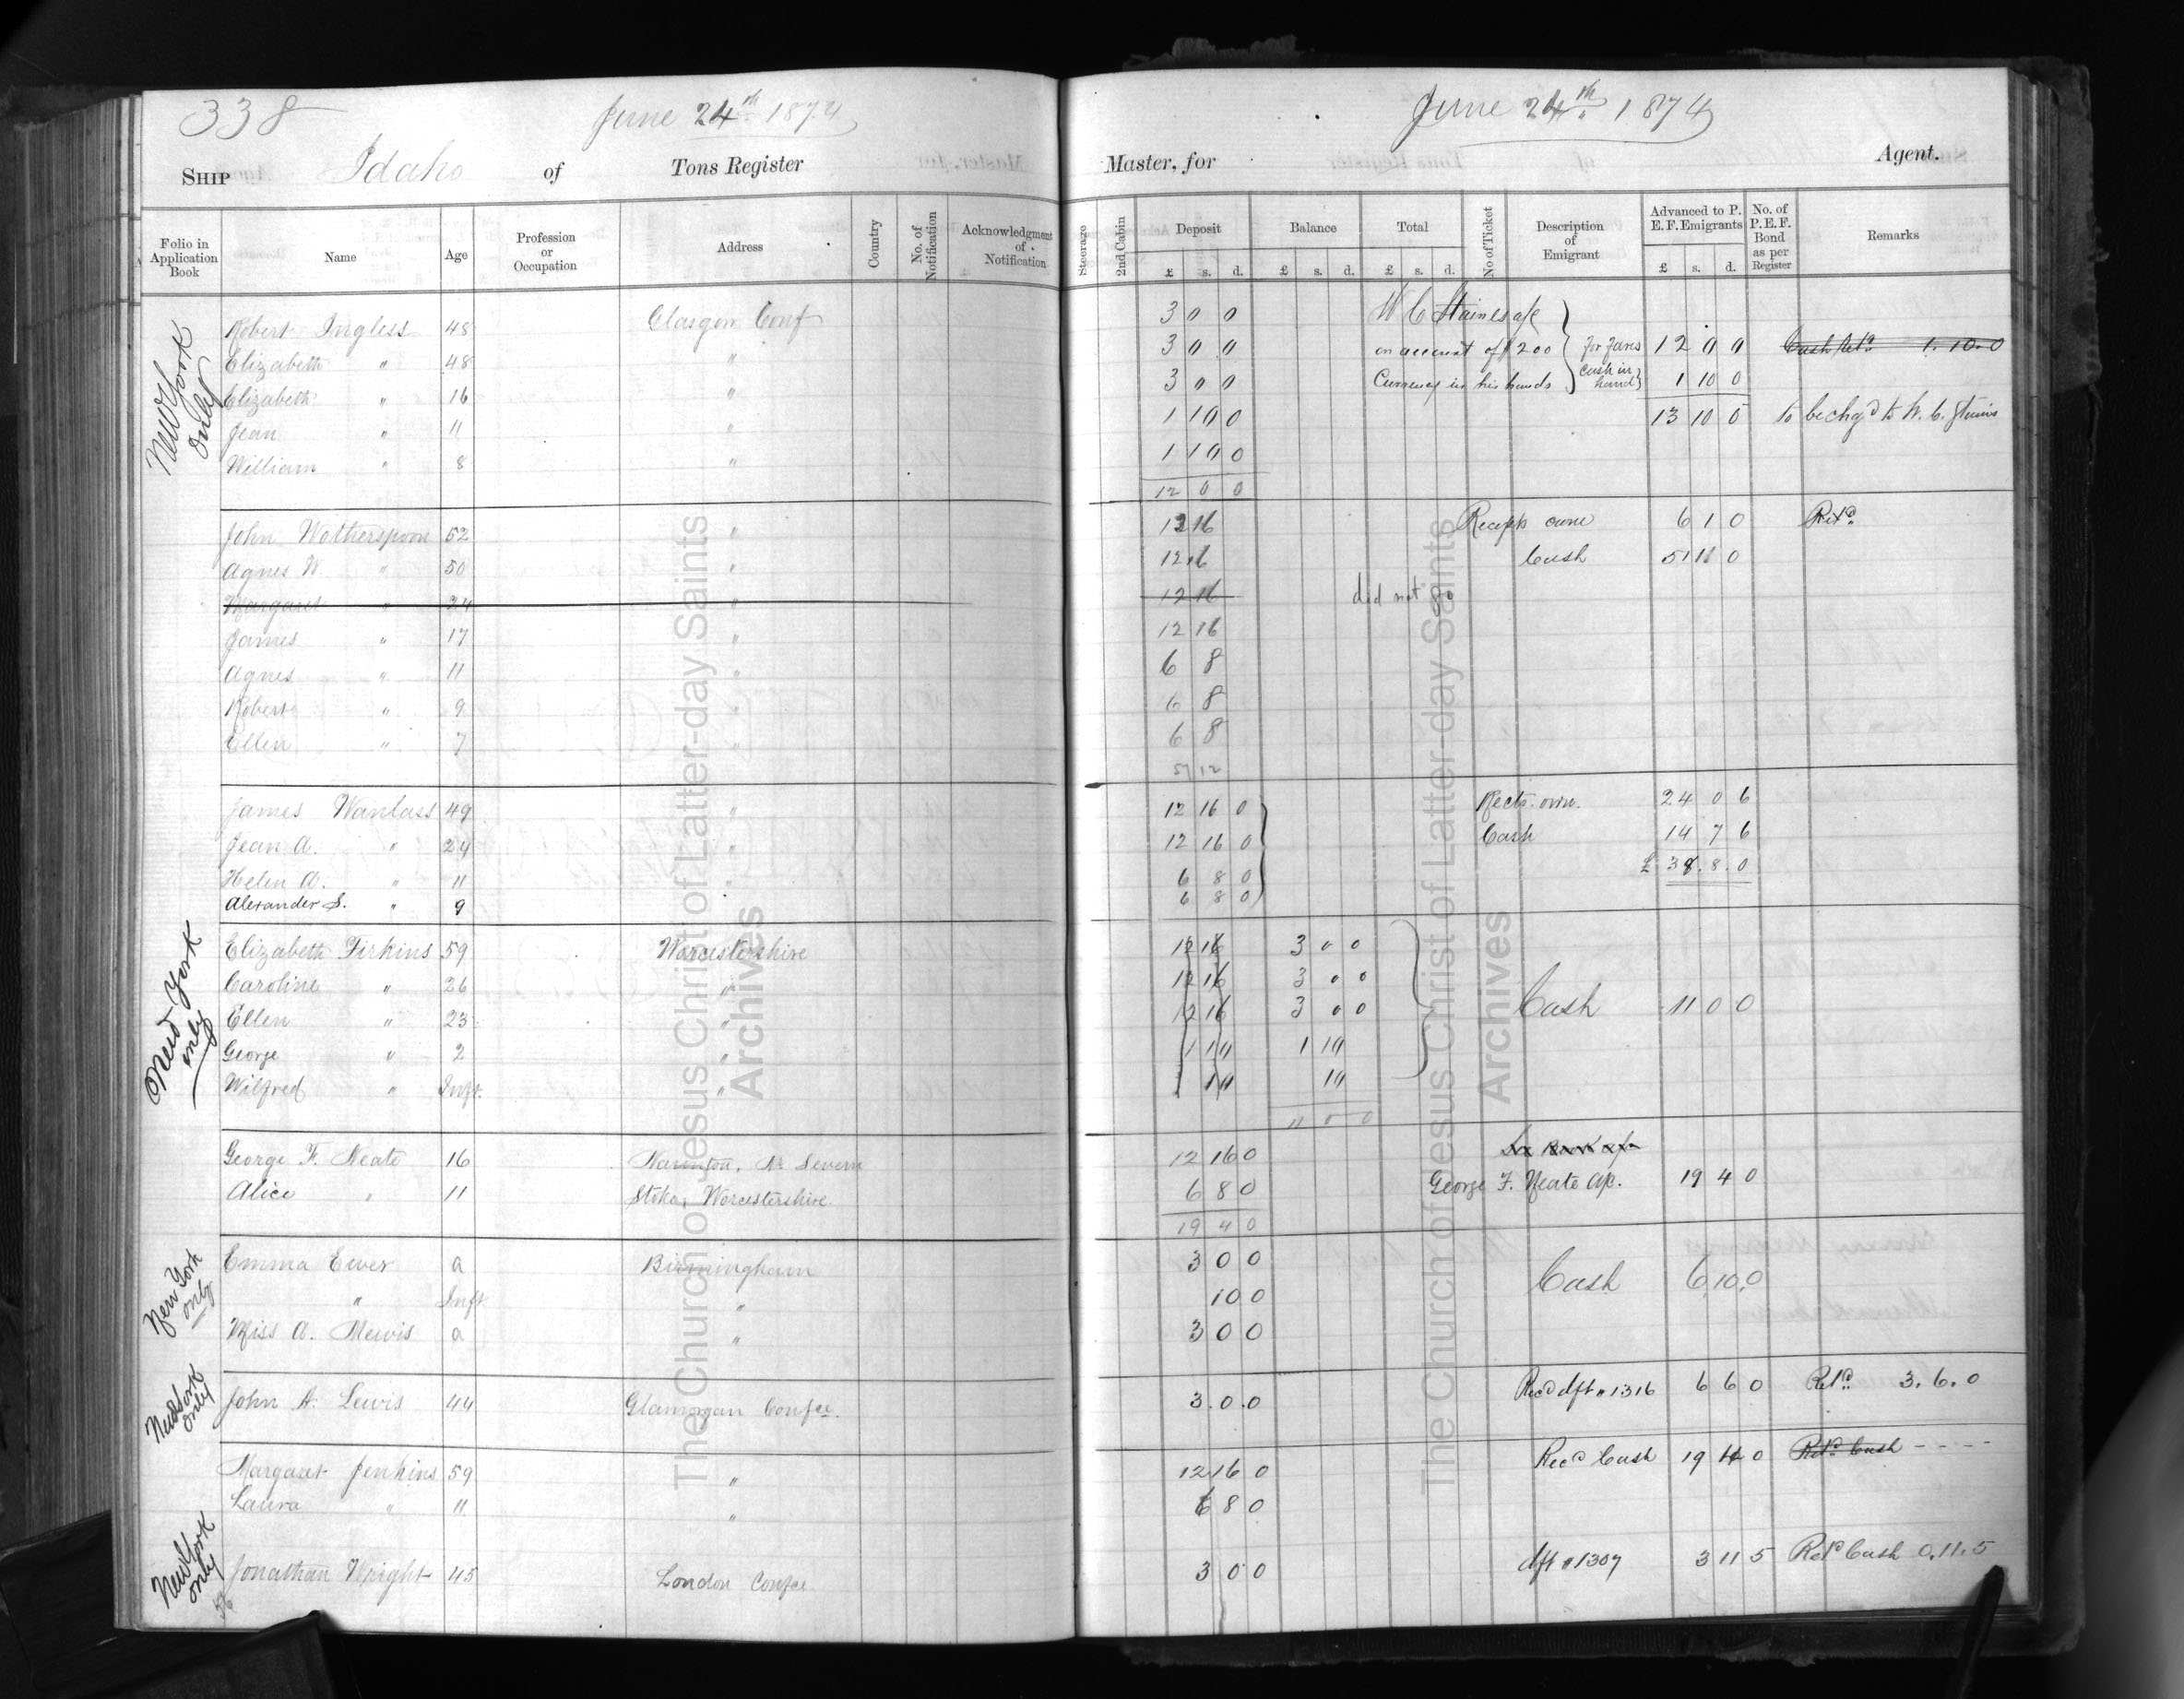 338 June 24th 1874
SHIP Idaho of Tons Register
Folio in Application Book Name Age Profession or Occupation Address Country No. of Notification Acknowledgment of Notification
New York only
Robert Ingless 48 Glasgow Conf
Elizabeth " 48 "
Elizabeth " 16 "
Jean " 11 "
William " 8 "
John Wotherspoon 52 "
Agnes W. " 50 "
Margaret " 24 "
James " 17 "
Agnes " 11 "
Robert " 9 "
Ellen " 7 "
James Wanlass 49 "
Jean A. " 24 "
Helen A. " 11 "
Alexander S. " 9
New York only
Elizabeth Firkins 59 Worcestershire
Caroline " 26 "
Ellen " 23 "
George " 2 "
Wilfred " Inft. "
George F. Neate 16 Naunton, Nr Severn
Alice " 11 Stoke, Worcestershire
New York only
Emma Ewer a Birmingham
" Inft "
Miss A. Mewis a "
New York only
John A. Lewis 44 Glamorgan Confce.
Margaret Jenkins 59 "
Laura " 11 "
New York only
Jonathan Wright 45 London Confce
June 24th 1874
Master, for Agent.
Steerage 2nd Cabin Deposit Balance Total No of Ticket Description of Emigrant Advanced to P. E. F. Emigrants No. of P.E.F. Bond as per Register Remarks
£ s. d. £ s. d. £ s. d. £ s. d.
3 0 0 W C Staines a/c
3 0 0 on account of $200 for fares 12 0 0 Cash Retd 1.10.0
3 0 0 Currency in his hands cash in hand 1 10 0
1 10 0 13 10 0 to be chgd to W. C. Staines
1 10 0
12 0 0
12 16 Receipts owne 6 1 0 Retd
12 16 Cash 51 11 0
12 16 did not go
12 16
6 8
6 8
6 8
57 12
12 16 0 Rects. own. 24 0 6
12 16 0 Cash 14 7 6
6 8 0 £ 38.8.0
6 8 0
12 16 3 0 0
12 16 3 0 0
12 16 3 0 0 Cash 11 0 0
1 10 1 10
10 10
11 0 0
12 16 0
6 8 0 George F. Neate a/c. 19 4 0
19 4 0
3 0 0
10 0 Cash 6.10.0
3 0 0
3.0.0 Recd dft # 1316 6 6 0 Retd. 3.6.0
12 16 0 Recd Cash 19 4 0 Retd Cash - - - -
6 8 0
3 0 0 dft # 1309 3 11 5 Retd Cash 0.11.5
The Church of Jesus Christ of Latter-day Saints
Archives
The Church of Jesus Christ of Latter-day Saints
Archives